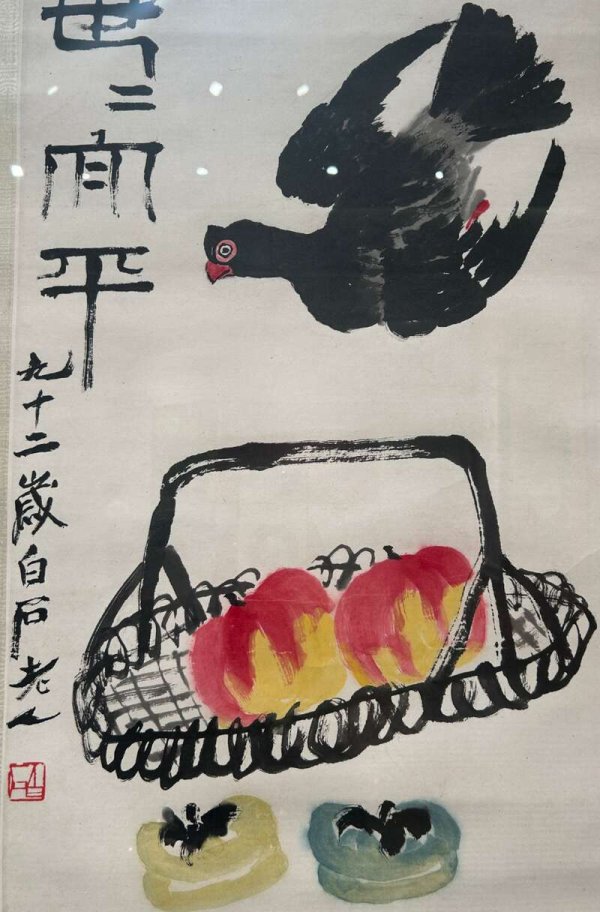 世二平
九十二歲白石老人